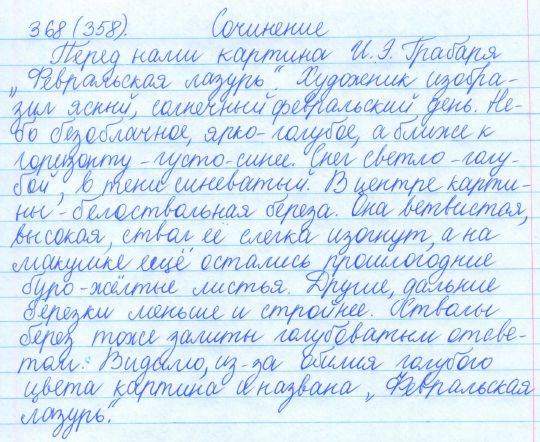 368 (358). Сочинение
Перед нами картина И.Э. Грабаря
„Февральская лазурь“ Художник изобра-
зил ясный, солнечный февральский день. Не-
бо безоблачное, ярко-голубое, а ближе к
горизонту - густо-синее. Снег светло-голу-
бой, в тени синеватый. В центре карти-
ны - белоствольная береза. Она ветвистая,
высокая, ствол её слегка изогнут, а на
макушке ещё остались прошлогодние
буро-жёлтые листья. Другие, дальние
березки меньше и стройнее. Стволы
берез тоже залиты голубоватым отсве-
том. Видимо, из-за обилия голубого
цвета картина и названа „Февральская
лазурь“.